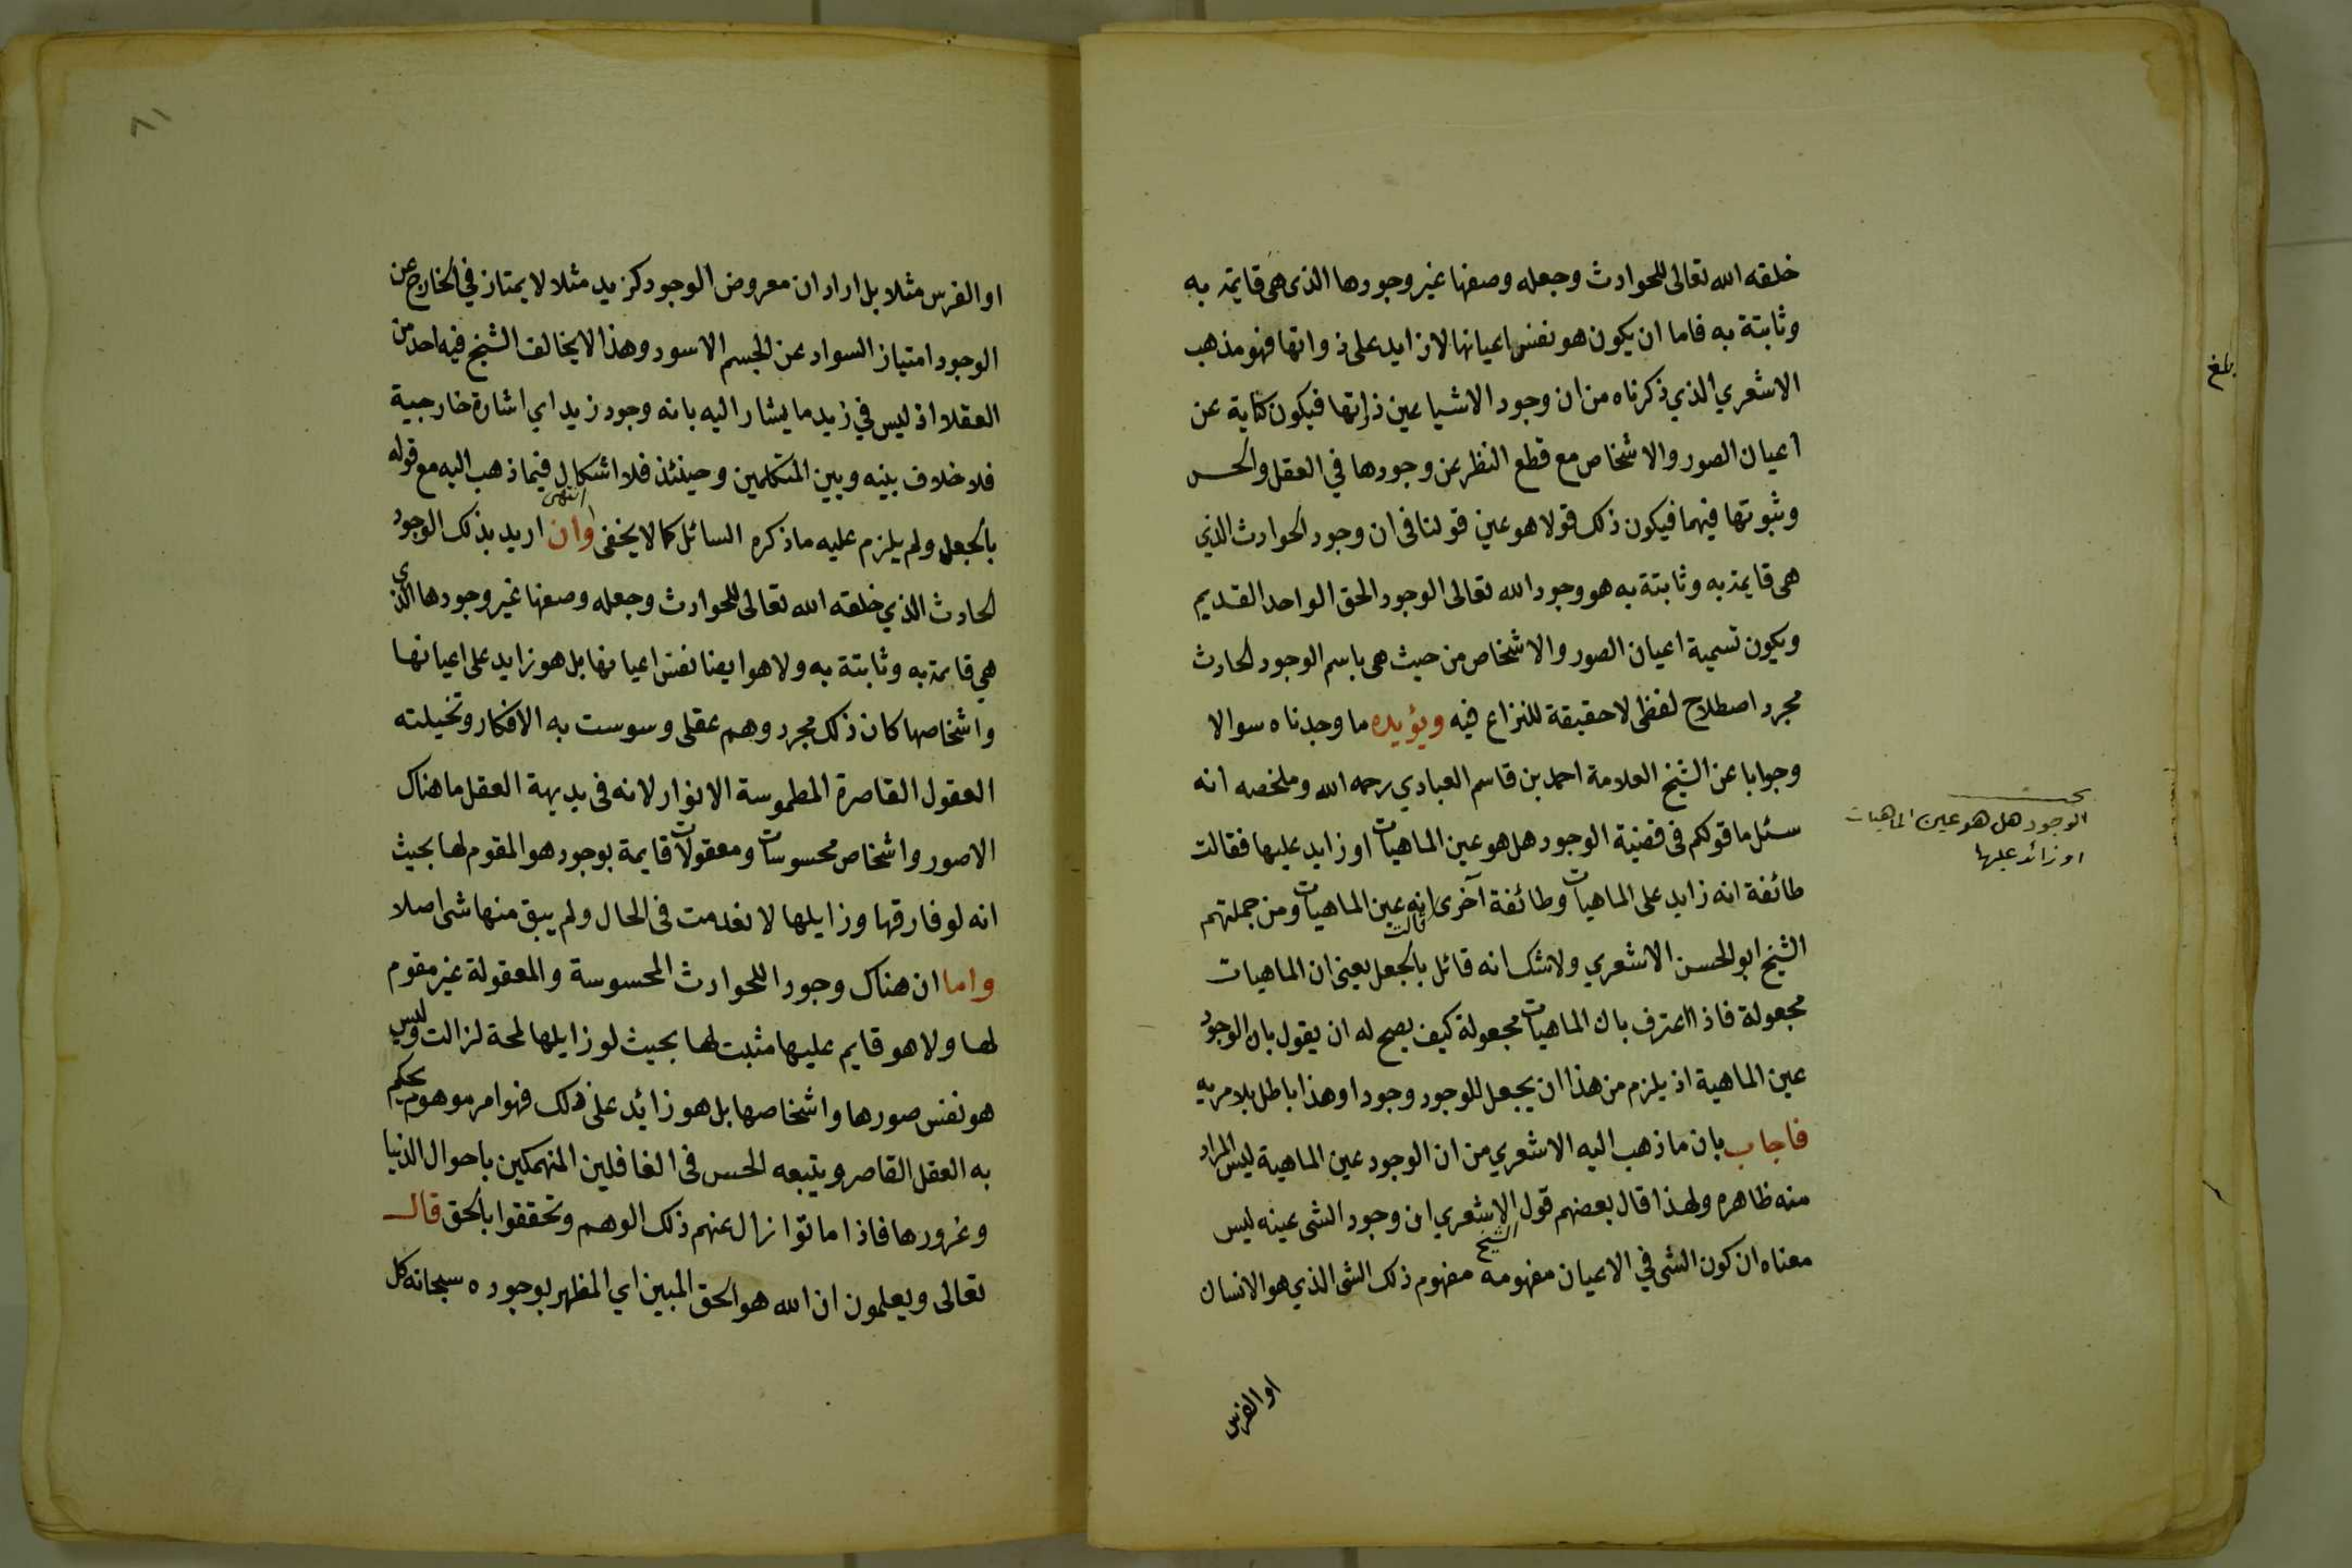 خلقه الله تعالى للحوادث وجعله وصفها غير وجودها الذى هى قايمة به
وثابتة به فاما ان يكون هو نفس اعيانها لا زايد على ذواتها فهو مذهب
الاشعري الذي ذكرناه من ان وجود الاشيا عين ذاتها فيكون كناية عن
اعيان الصور والاشخاص مع قطع النظر عن وجودها في العقل والحس
وثبوتها فيهما فيكون ذلك قولا هو عين قولنا فى ان وجود الحوادث الذي
هى قايمة به وثابتة به هو وجود الله تعالى الوجود الحق الواحد القديم
ويكون تسمية اعيان الصور والاشخاص من حيث هى باسم الوجود الحادث
مجرد اصطلاح لفظى لا حقيقة للنزاع فيه ويؤيده ما وجدناه سوالا
وجوابا عن الشيخ العلامة احمد بن قاسم العبادي رحمه الله وملخصه انه
سئل ما قولكم فى قضية الوجود هل هو عين الماهيات او زايد عليها فقالت
طائفة انه زايد على الماهيات وطائفة آخرى قالت انه عين الماهيات ومن جملتهم
الشيخ ابو الحسن الاشعري ولا شك انه قائل بالجعل يعنى ان الماهيات
مجعولة فاذا اعترف بان الماهيات مجعولة كيف يصح له ان يقول بان الوجود
عين الماهية اذ يلزم من هذا ان يجعل للوجود وجودا وهذا باطل بلا مريه
فاجاب بان ما ذهب اليه الاشعري من ان الوجود عين الماهية ليس المراد
منه ظاهره ولهذا قال بعضهم قول الشيخ الاشعري ان وجود الشى عينه ليس
معناه ان كون الشى في الاعيان مفهومه مفهوم ذلك الشى الذي هو الانسان
او الفرس
بحث
الوجود هل هو عين الماهيات
او زائد عليها
بلغ
٦١
او الفرس مثلا بل اراد ان معروض الوجود كزيد مثلا لا يمتاز في الخارج عن
الوجود امتياز السواد عن الجسم الاسود وهذا لا يخالف الشيخ فيه احد من
العقلا اذ ليس في زيد ما يشار اليه بانه وجود زيد اي اشارة خارجية
فلا خلاف بينه وبين المتكلمين وحينئذ فلا اشكال فيما ذهب اليه مع قوله
بالجعل ولم يلزم عليه ما ذكره السائل كما لا يخفى انتهى وان اريد بذلك الوجود
الحادث الذي خلقه الله تعالى للحوادث وجعله وصفها غير وجودها الذى
هي قايمة به وثابتة به ولا هو ايضا نفس اعيانها بل هو زايد على اعيانها
واشخاصها كان ذلك مجرد وهم عقلى وسوست به الافكار وتخيلته
العقول القاصرة المطموسة الانوار لانه فى بديهة العقل ما هناك
الا صور واشخاص محسوسات ومعقولات قايمة بوجود هو المقوم لها بحيث
انه لو فارقها وزايلها لانعدمت فى الحال ولم يبق منها شى اصلا
واما ان هناك وجودا للحوادث المحسوسة والمعقولة غير مقوم
لها ولا هو قايم عليها مثبت لها بحيث لو زايلها لمحة لزالت وليس
هو نفس صورها واشخاصها بل هو زائد على ذلك فهو امر موهوم يحكم
به العقل القاصر ويتبعه الحس فى الغافلين المنهمكين باحوال الدنيا
وغرورها فاذا ماتوا زال عنهم ذلك الوهم وتحققوا بالحق قال
تعالى ويعلمون ان الله هو الحق المبين اي المظهر بوجوده سبحانه كل